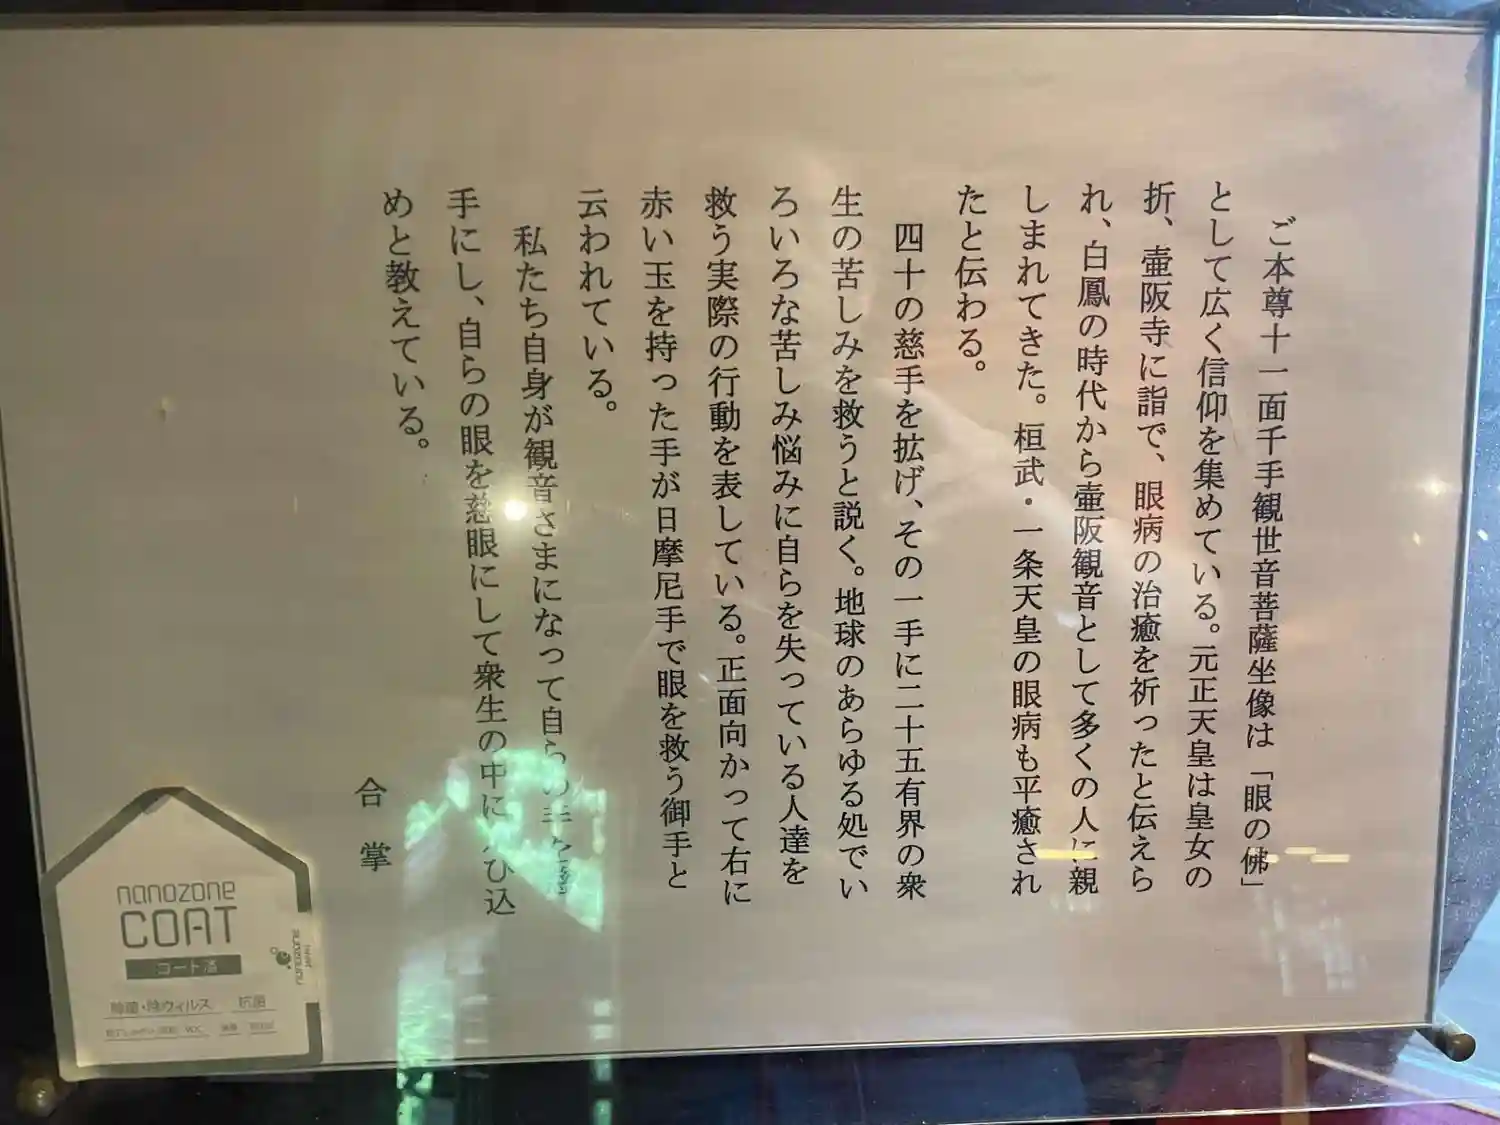 ご本尊十一面千手観世音菩薩坐像は「眼の佛」
として広く信仰を集めている。元正天皇は皇女の
折、壷阪寺に詣で、眼病の治癒を祈ったと伝えら
れ、白鳳の時代から壷阪観音として多くの人に親
しまれてきた。桓武・一条天皇の眼病も平癒され
たと伝わる。
四十の慈手を拡げ、その一手に二十五有界の衆
生の苦しみを救うと説く。地球のあらゆる処でい
ろいろな苦しみ悩みに自らを失っている人達を
救う実際の行動を表している。正面向かって右に
赤い玉を持った手が日摩尼手で眼を救う御手と
云われている。
私たち自身が観音さまになって自らの手を慈
手にし、自らの眼を慈眼にして衆生の中に飛び込
めと教えている。
合掌
nanozone
COAT
コート済
除菌・除ウィルス 抗菌